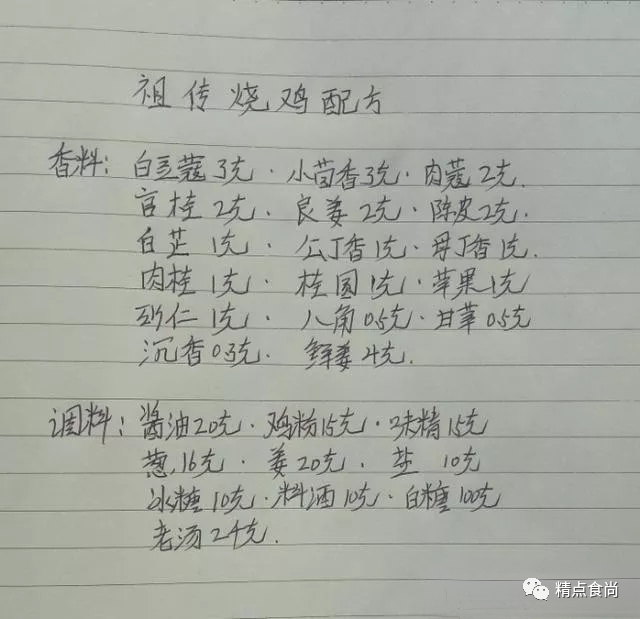 祖传烧鸡配方
香料：白豆蔻3克·小茴香3克·肉蔻2克.
官桂2克·良姜2克·陈皮2克.
白芷1克·公丁香1克·母丁香1克.
肉桂1克·桂圆1克·苹果1克
砂仁1克·八角0.5克·甘草0.5克
沉香0.3克·鲜姜4克.
调料：酱油20克·鸡粉15克·味精15克
葱16克·姜20克·盐10克
冰糖10克·料酒10克·白糖100克
老汤2千克.
精点食尚